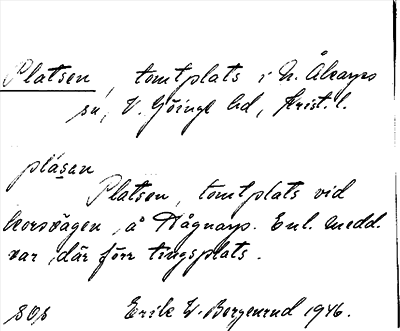 Platsen, tomtplats i N. Åkarps
sn, V. Göinge hd, Krist. l.
plásan
Platsen, tomtplats vid
korsvägen å Rågnarp. Enl. medd.
var där förr tingsplats.
Erik W. Borgenrud 1946.